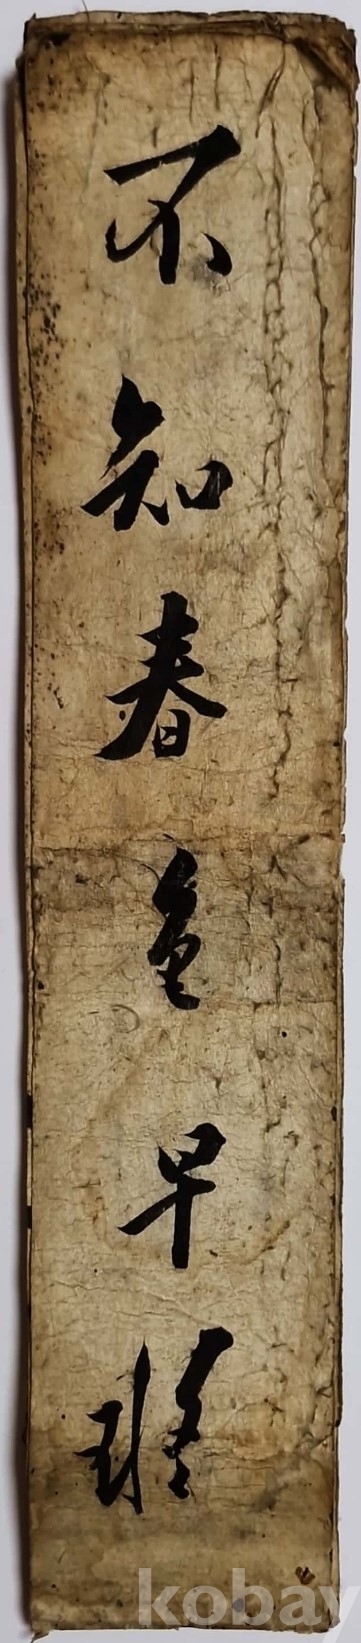 不知春色早疑
kobay